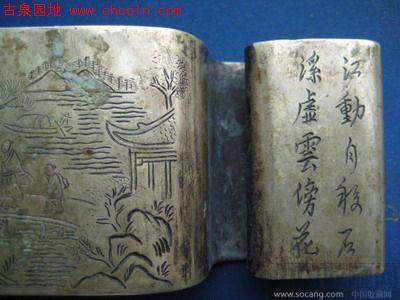 古泉园地 www.chcoin.com
江動月移石
溪虛雲傍花
www.socang.com 中国收藏网